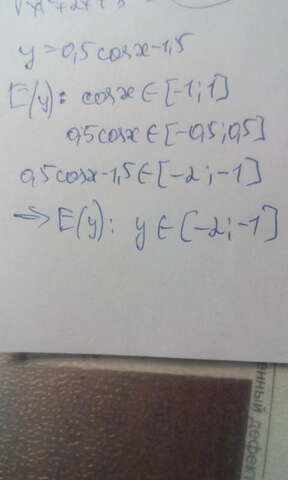 y = 0,5 cosx - 1,5
E(y): cosx ∈ [-1; 1]
0,5 cosx ∈ [-0,5; 0,5]
0,5 cosx - 1,5 ∈ [-2; -1]
⇒ E(y): y ∈ [-2; -1]
енный дефект